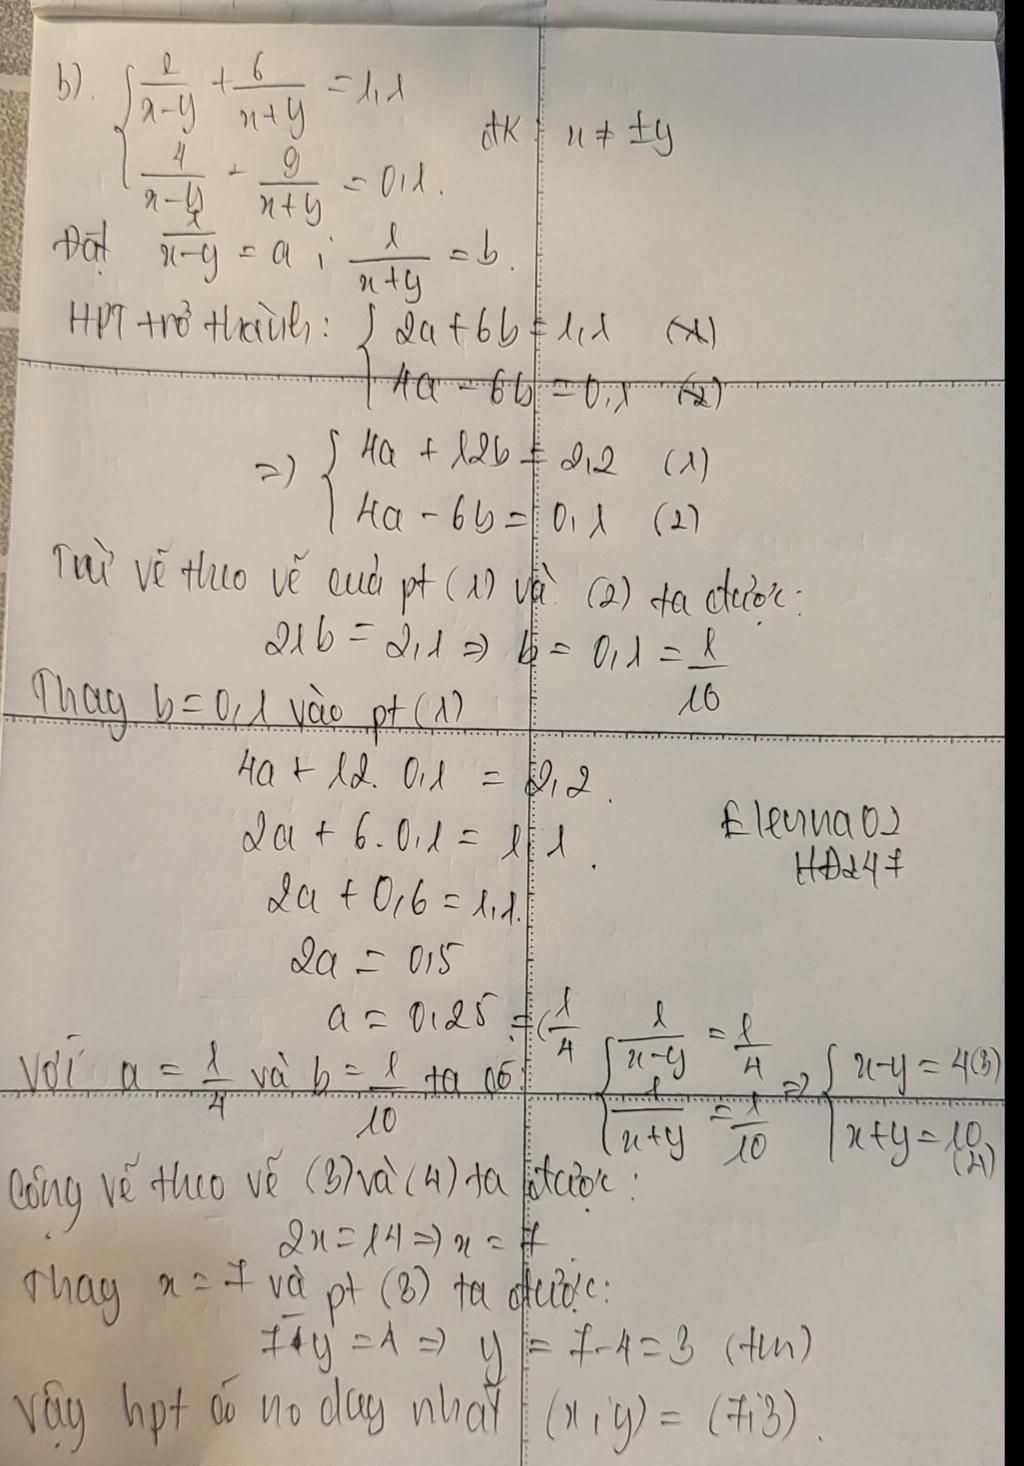 b). { 2/(x-y) + 6/(x+y) = 1,1
4/(x-y) - 9/(x+y) = 0,1.
đk: x ≠ ±y
Đặt 1/(x-y) = a ; 1/(x+y) = b.
HPT trở thành: { 2a + 6b = 1,1 (1)
4a - 6b = 0,1 (2)
=> { 4a + 12b = 2,2 (1)
4a - 6b = 0,1 (2)
Trừ vế theo vế của pt (1) và (2) ta được:
21b = 2,1 => b = 0,1 = 1/10
Thay b = 0,1 vào pt (1)
4a + 12. 0,1 = 2,2.
2a + 6. 0,1 = 1,1.
2a + 0,6 = 1,1.
2a = 0,5
a = 0,25 = 1/4
Elenna02
HD247
Với a = 1/4 và b = 1/10 ta có: { 1/(x-y) = 1/4 => { x-y = 4 (3)
1/(x+y) = 1/10 x+y = 10 (4)
Cộng vế theo vế (3) và (4) ta được:
2x = 14 => x = 7
Thay x = 7 và pt (3) ta được:
7-y = 4 => y = 7-4 = 3 (tm)
Vậy hpt có no duy nhất (x;y) = (7;3).